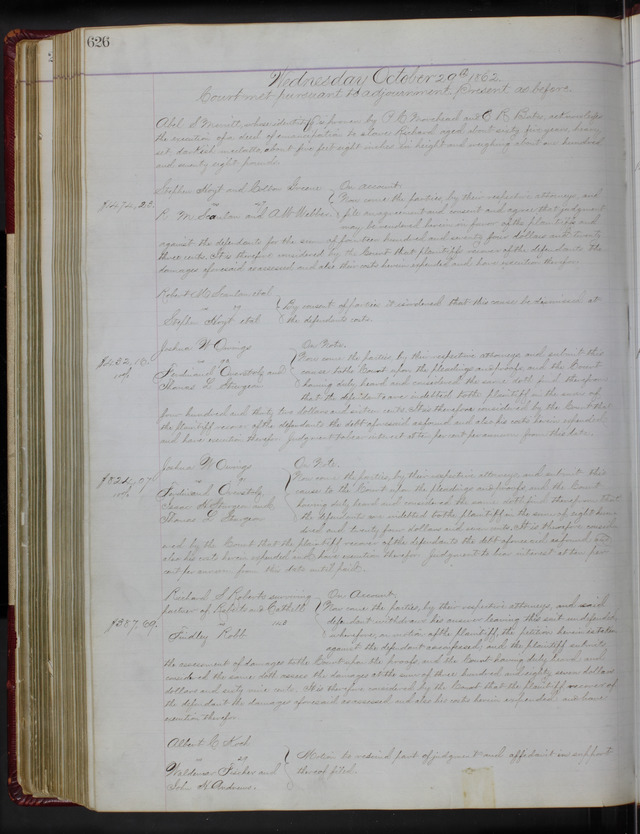 626
Wednesday October 29th 1862
Court met pursuant to adjournment, Present as before
Abel S Merrill, whose identity is proven by P. C. Morehead and E. R. acknowledges
the execution of a deed of emancipation to a slave Richard aged about sixty five years, heavy
set, dark mulatto, about five feet eight inches in height and weighing about one hundred
and seventy eight pounds.
Stephen Hoyt and Greene On account.
$1474.23. vs Now come the parties, by their respective attorneys, and
R. M. Scanlan and A. W. Webber file an agreement and consent and agree that judgment
may be rendered herein in favor of the plaintiffs and
against the defendants for the sum of fourteen hundred and seventy four dollars and twenty
three cents. It is therefore considered by the Court that plaintiffs recover of the defendants the
damages aforesaid as assessed and also their costs herein expended and have execution therefor.
Robert M Scanlan et al
vs By consent of parties it is ordered that this cause be dismissed at
Stephen Hoyt et al the defendants costs.
Joshua W Owings On Note.
$432.16 vs Now come the parties by their respective attorneys and submit this
10% Ferdinand and cause to the Court upon the pleadings and proofs and the Court
Thomas L Sturgeon having duly heard and considered the same doth find therefrom
that the defendants are indebted to the plaintiff in the sum of
four hundred and thirty two dollars and sixteen cents. It is therefore considered by the Court that
the plaintiff recover of the defendants the debt aforesaid as found and also his costs herein expended
and have execution therefor. Judgment to bear interest at ten per cent per annum from this date.
Joshua W Owings On Note.
$824.07 vs Now come the parties, by their respective attorneys and submit this
10% Ferdinand cause to the Court upon the pleadings and proofs and the Court
Isaac H Sturgeon and having duly heard and considered the same doth find therefrom that
Thomas L Sturgeon the defendants are indebted to the plaintiff in the sum of eight hun-
dred and twenty four dollars and seven cents. It is therefore consid-
ered by the Court that the plaintiff recover of the defendants the debt aforesaid as found and
also his costs herein expended and have execution therefor. Judgment to bear interest at ten per
cent per annum from this date until paid.
Richard S Roberts surviving On Account.
partner of Roberts and Now come the parties, by their respective attorneys, and said
$387.69. vs defendant withdraws his answer leaving this suit undefended
Findley Robb wherefore, on motion of the plaintiff, the petition herein is taken
against the defendant as confessed, and the plaintiff submits
the assessment of damages to the Court upon the proofs and the Court having duly heard, and
considered the same doth assess the damages at the sum of three hundred and eighty seven dollars
dollars and sixty nine cents. It is therefore considered by the Court that the plaintiff recover of
the defendant the damages aforesaid as assessed and also his costs herein expended and have
execution therefor.
Albert C Koch
vs Motion to rescind part of judgment and affidavit in support
Waldemar Fischer and thereof filed.
John H Andrews.